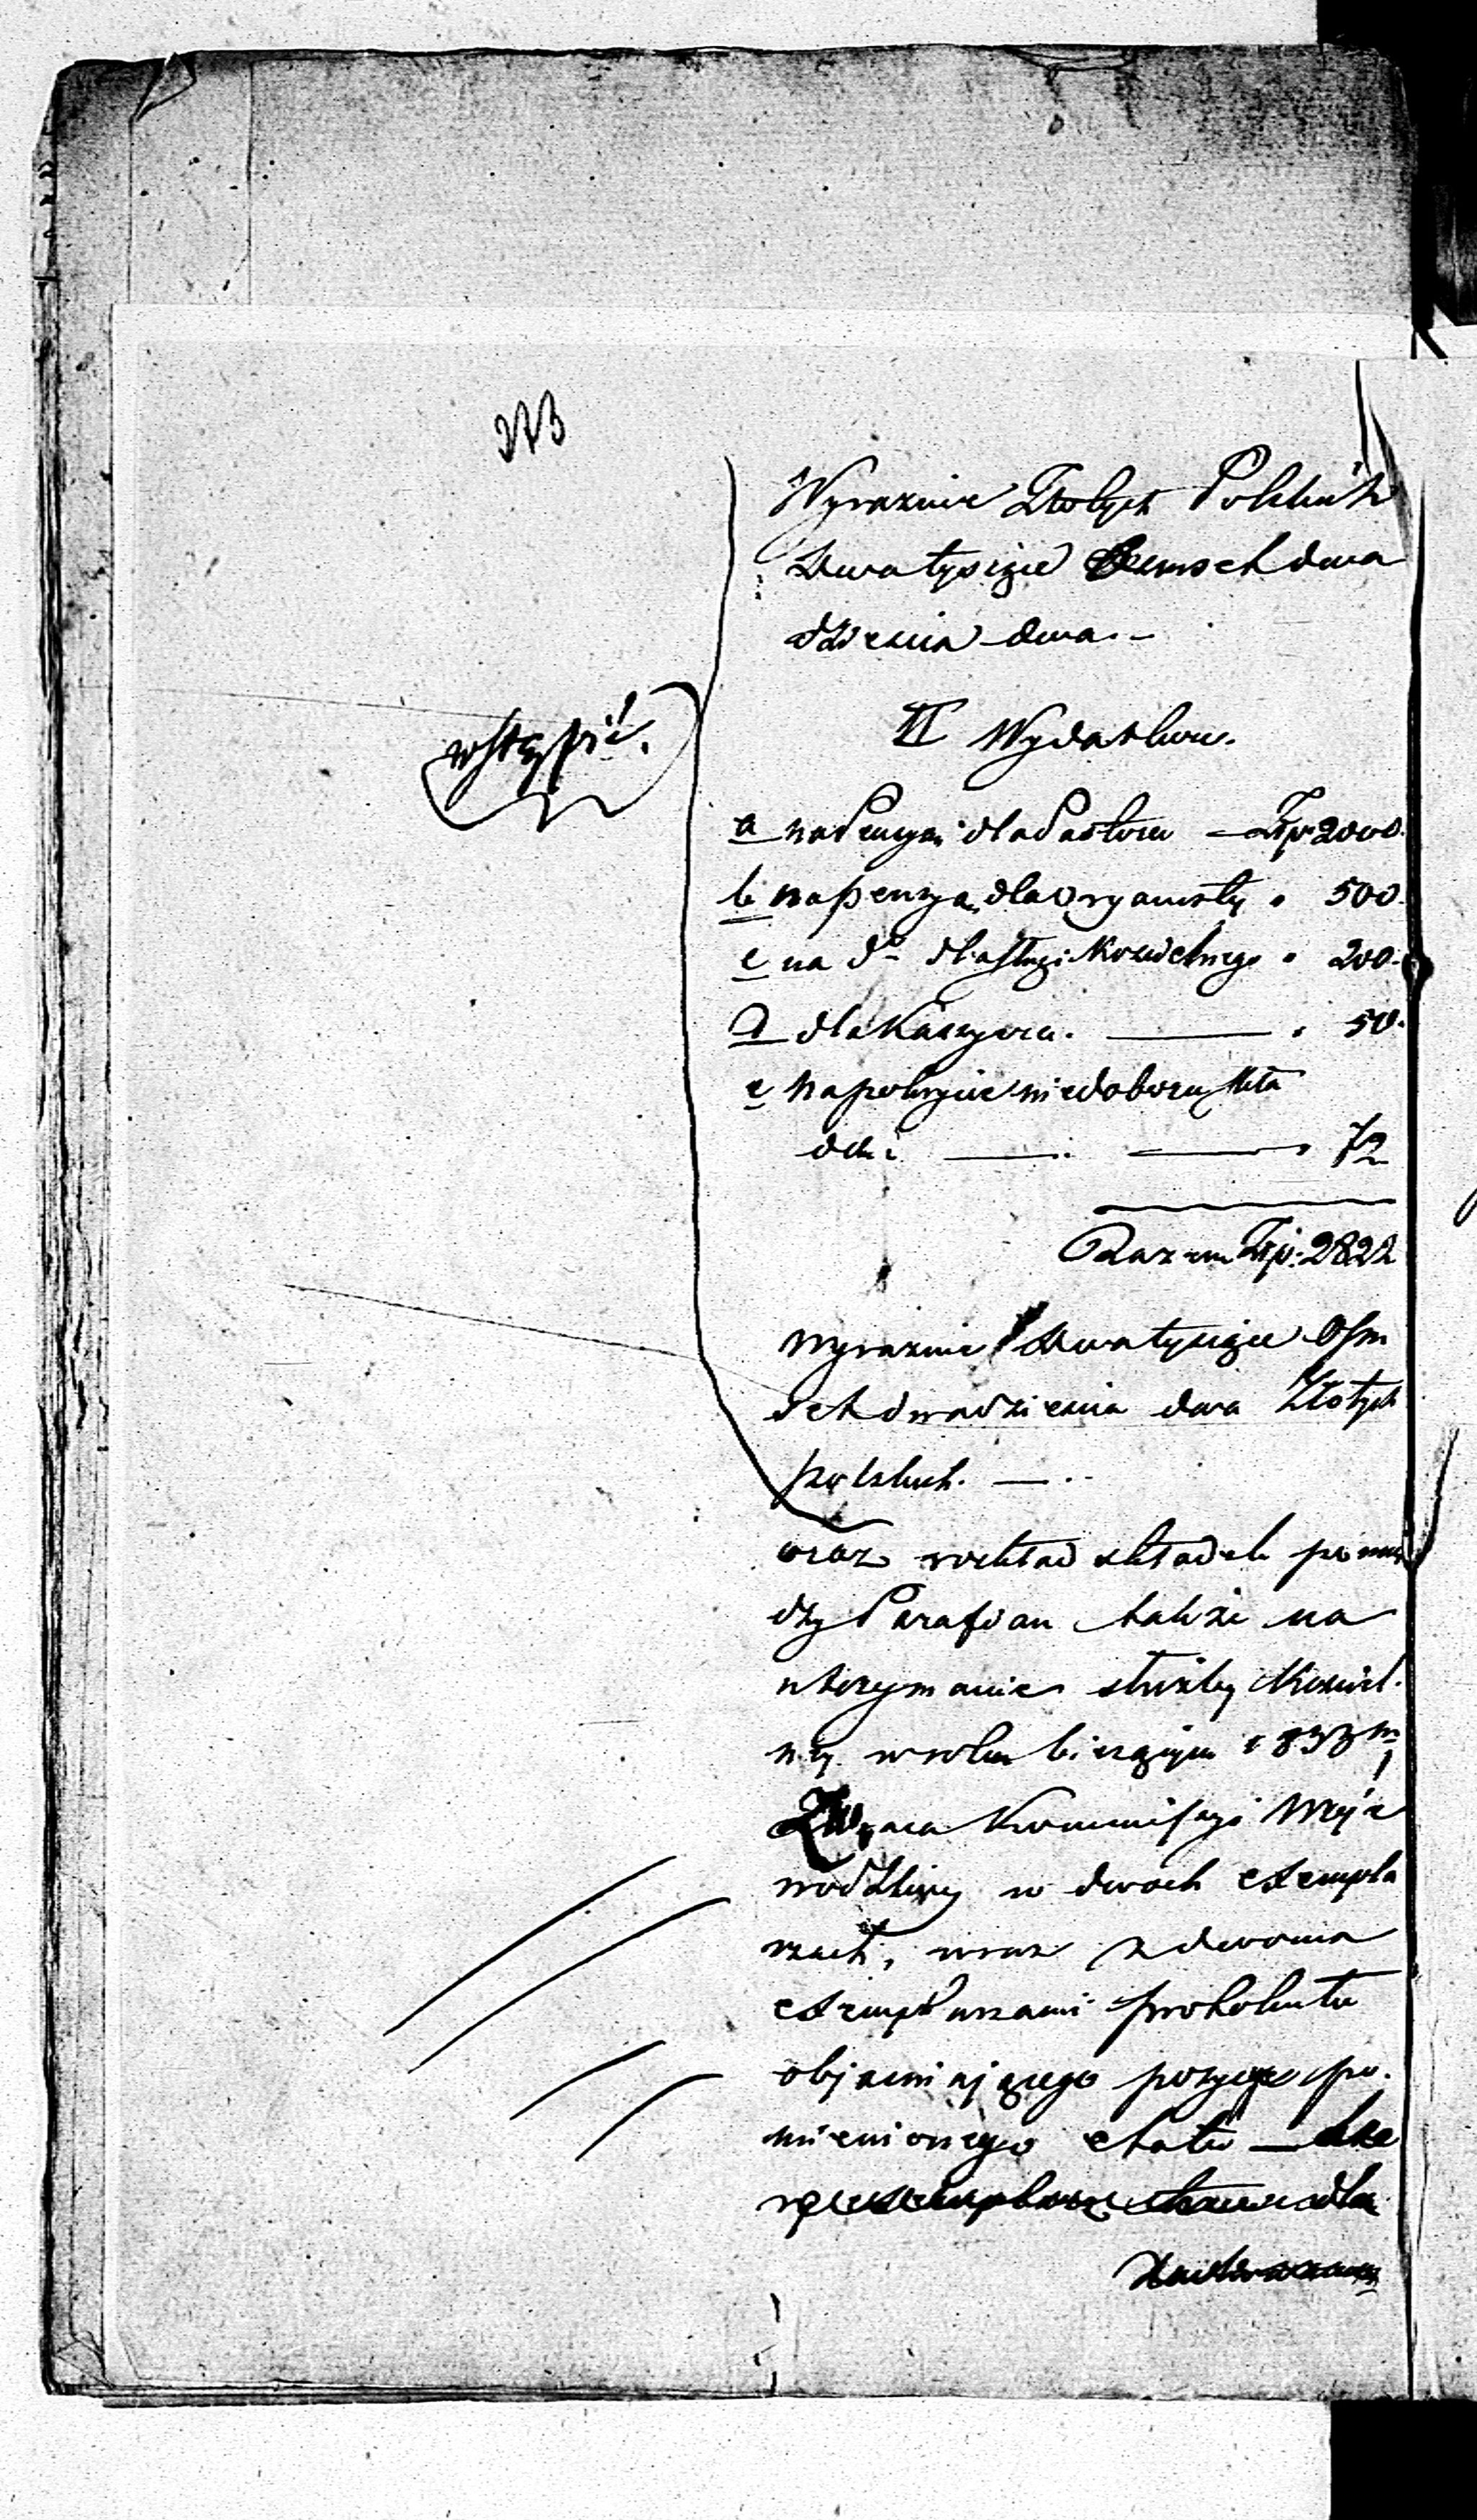 373
Wyraznie Złotych Polskich
dwa tysiące Osmset dwa
dziescia dwa. –
wstąpić.
II Wydatków.
a na Pensyą dla Pastora — Złp. 2000.
b na pensyą dla Organisty „ 500.
c na do dla sługi Koscielnego „ 200.
d dla Kassyera. — „ 50.
e na pokrycie niedoboru skła
dki — — „ 72
Razem Złp. 2822
wyraznie dwa tysiące Osm
set dwadziescia dwa Złotych
polskich. —
oraz rozkład składek pomię
dzy Parafian także na
utrzymanie służby Kosciel.
ney w roku bieżącym 1838m
Zwraca Kommissyi Woje
wodzkiey w dwoch exempla
rzach, wraz z dwoma
exemplarzami protokułu
objasniającego pozycye po.
mienionego etatu —